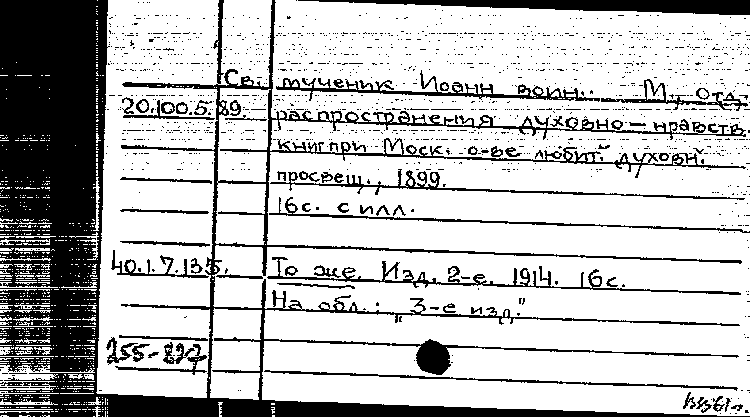 Св. мученик Иоанн воин.. М., отд.
20.100.5.89. распространения духовно-нравств.
книг при Моск. о-ве любит. духовн.
просвещ., 1899.
16с. с илл.
40.1.7.135. То же. Изд. 2-е. 1914. 16с.
На обл.: „3-е изд."
255-827